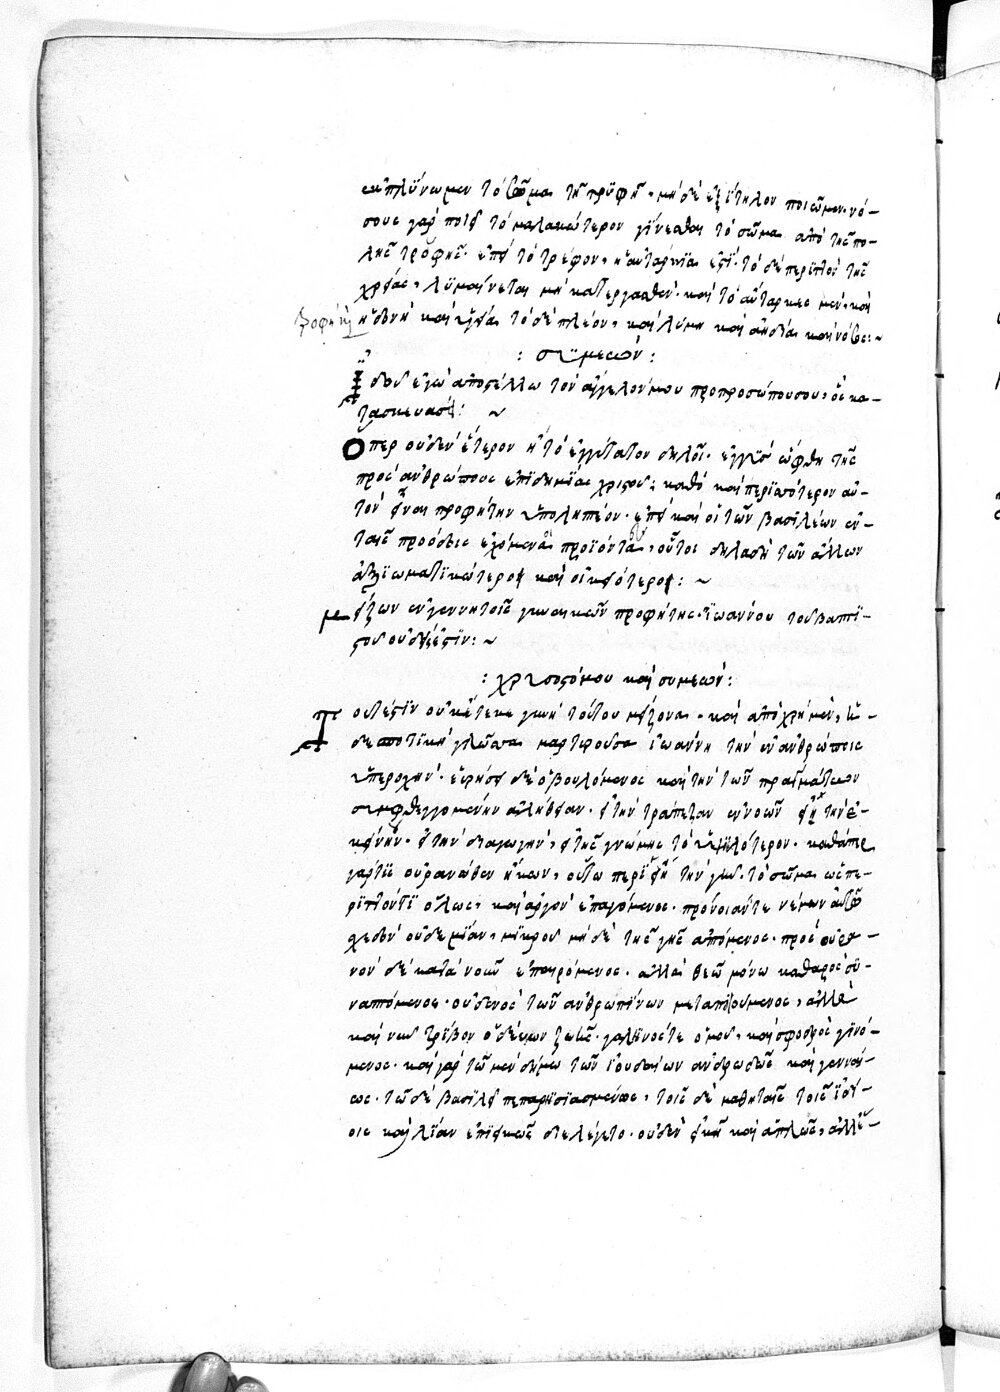 ἐκπλύνωμεν τὸ σῶμα τῇ τρυφῇ· μὴ δὲ ἐξίτηλον ποιῶμεν· νό-
σους γὰρ ποιεῖ τὸ μαλακώτερον γίνεσθαι τὸ σῶμα ἀπὸ τῆς πο-
λῆς τροφῆς· ἐπεὶ τὸ τρέφον, ἡ αὐτάρκεια ἐστί· τὸ δὲ περιττὸν τῆς
χρείας, λυμαίνεται μὴ κατεργασθέν· καὶ τὸ αὔταρκες μὲν, καὶ
τροφὴ ἡ
ἡδονὴ καὶ τὸ δὲ πλέον, καὶ λύμη καὶ ἀηδία καὶ νόσος:~
: συμεών :
Ἰδοὺ ἐγὼ ἀποστέλλω τὸν ἄγγελόν μου πρὸ προσώπου σου, ὃς κα-
τασκευάσει: ~
Ὅπερ οὐδὲν ἕτερον ἢ τὸ ἐγγύτατον δηλοῖ· ἐγγὺς ὤφθη τῆς
πρὸς ἀνθρώπους ἐπιδημίας χριστοῦ; καθὸ καὶ περισσότερον αὐ-
τὸν εἶναι προφήτην ὑποληπτέον· ἐπεὶ καὶ οἱ τῶν βασιλέων ἐν
ταῖς προόδοις ἐχόμενα προϊόντα, οὗτοι δηλαδὴ τῶν ἄλλων
ἀξιωματικώτεροι καὶ οἰκειότεροι: ~
μείζων ἐν γεννητοῖς γυναικῶν προφήτης· ἰωάννου τοῦ βαπτι-
στοῦ οὐδείς ἐστιν: ~
: χρυσοστόμου καὶ συμεών :
Τουτέστιν οὐκ ἔτεκε γυνὴ τούτου μείζονα· καὶ ἀπόχρη μὲν, ἡ
δεσποτικὴ γλῶσσα μαρτυροῦσα ἰωάννῃ τὴν ἐν ἀνθρώποις
ὑπεροχήν· εὑρήσει δὲ ὁ βουλόμενος καὶ τὴν τῶν πραγμάτων
συμφθεγγομένην ἀλήθειαν· εἰ τὴν τράπεζαν ἐννοῶν εἴη τὴν ἐ-
κείνου· εἰ τὴν διαγωγήν, εἰ τῆς γνώμης τὸ ὑψηλότερον· καθάπερ
γάρ τις οὐρανόθεν ἥκων, οὕτω περιῄει τὴν γῆν· τὸ σῶμα ὡς πε-
ριττόν τι ὅλως, καὶ ἀργὸν ἐπαγόμενος· πρόνοιάν τε νέμων αὐτῷ
σχεδὸν οὐδεμίαν, μικροῦ μὴ δὲ τῆς γῆς ἁπτόμενος· πρὸς οὐρα-
νὸν δὲ κατὰ νοῦν ἐπαιρόμενος· ἀλλὰ θεῷ μόνῳ καθαρῶς συ-
ναπτόμενος· οὐδενὸς τῶν ἀνθρωπίνων μεταποιούμενος, ἀλλὰ
καὶ νέαν τρίβον ὁδεύων ζωῆς· γαληνός τε ὁμοῦ, καὶ σφοδρὸς γινό-
μενος· καὶ γὰρ τῷ μὲν δήμῳ τῶν ἰουδαίων ἀνδρωδῶς καὶ γενναί-
ως· τῷ δὲ βασιλεῖ πεπαρρησιασμένως, τοῖς δὲ μαθηταῖς τοῖς ἰδί-
οις καὶ λίαν ἐπιεικῶς διελέγετο· οὐδὲν εἰκῇ καὶ ἁπλῶς, ἀλλ'